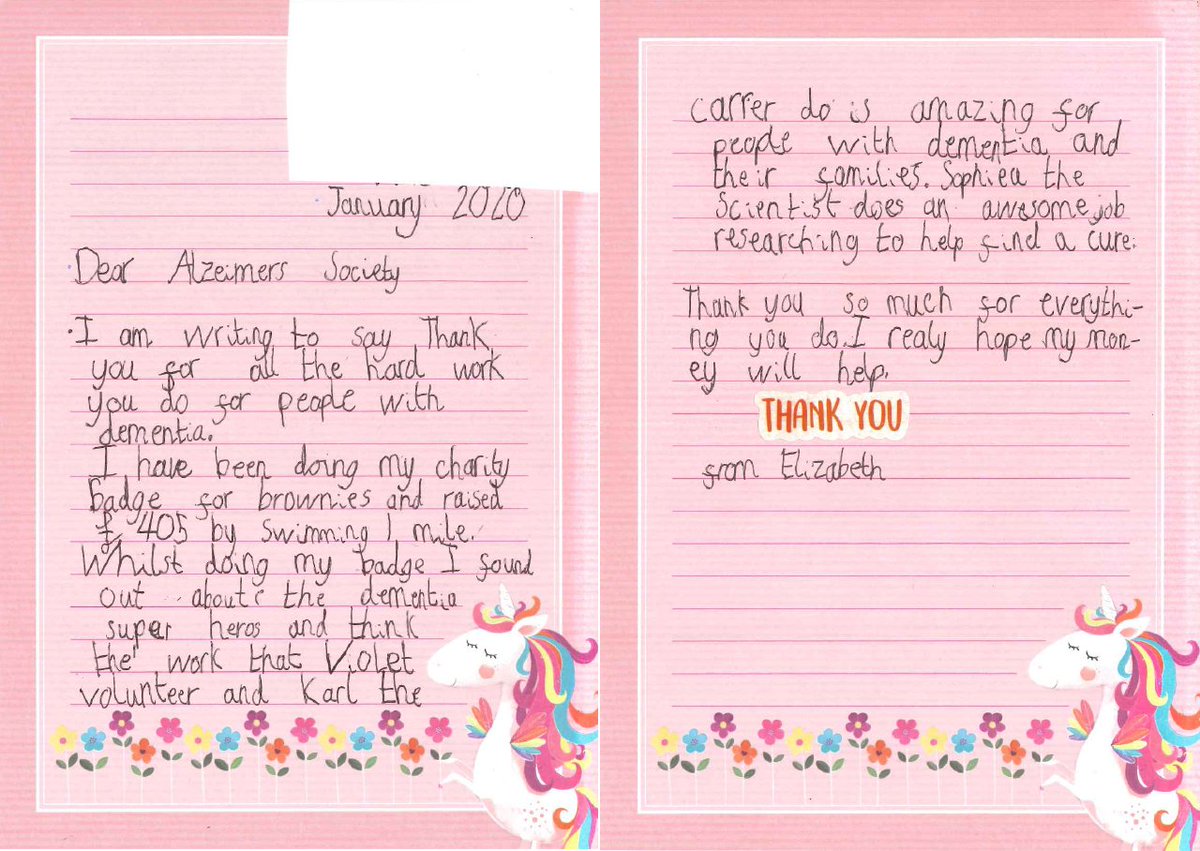 January 2020
Dear Alzeimers Society
I am writing to say Thank
you for all the hard work
you do for people with
dementia.
I have been doing my charity
badge for brownies and raised
£ 405 by swimming 1 mile.
Whilst doing my badge I found
out about the dementia
super heros and think
the work that Violet
volunteer and Karl the
carrer do is amazing for
people with dementia and
their families. Sophiea the
Scientist does an awesome job
researching to help find a cure.
Thank you so much for everythi-
ng you do. I realy hope my mon-
ey will help.
THANK YOU
from Elizabeth